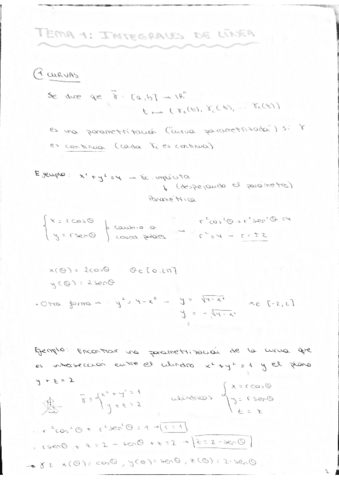 TEMA 1: INTEGRALES DE LÍNEA
1 CURVAS
Se dice que γ: [a,b] → ℝⁿ
t → (γ₁(t), γ₂(t), ... γₙ(t))
es una parametrización (curva parametrizada) si γ
es continua (cada γᵢ es continua).
Ejemplo: x² + y² = 4 → Ec. implícita
↓ (despejando el parámetro)
Paramétrica
{x = r cosθ
y = r senθ} cambio a polares → r²cos²θ + r²sen²θ = 4
r² = 4 → r = ±2
x(θ) = 2cosθ θ ∈ [0, 2π]
y(θ) = 2senθ
• Otra forma → y² = 4 - x² → y = √4-x²
y = -√4-x² x ∈ [-2, 2]
Ejemplo Encontrar una parametrización de la curva que
es intersección entre el cilindro x² + y² = 1 y el plano
y + z = 2
γ = {x² + y² = 1
y + z = 2 cilíndricas {x = r cosθ
y = r senθ
z = z
• r²cos²θ + r²sen²θ = 1 → r = 1
• r senθ + z = 2 → senθ + z = 2 → z = 2 - senθ
→ γ = x(θ) = cosθ, y(θ) = senθ, z(θ) = 2 - senθ